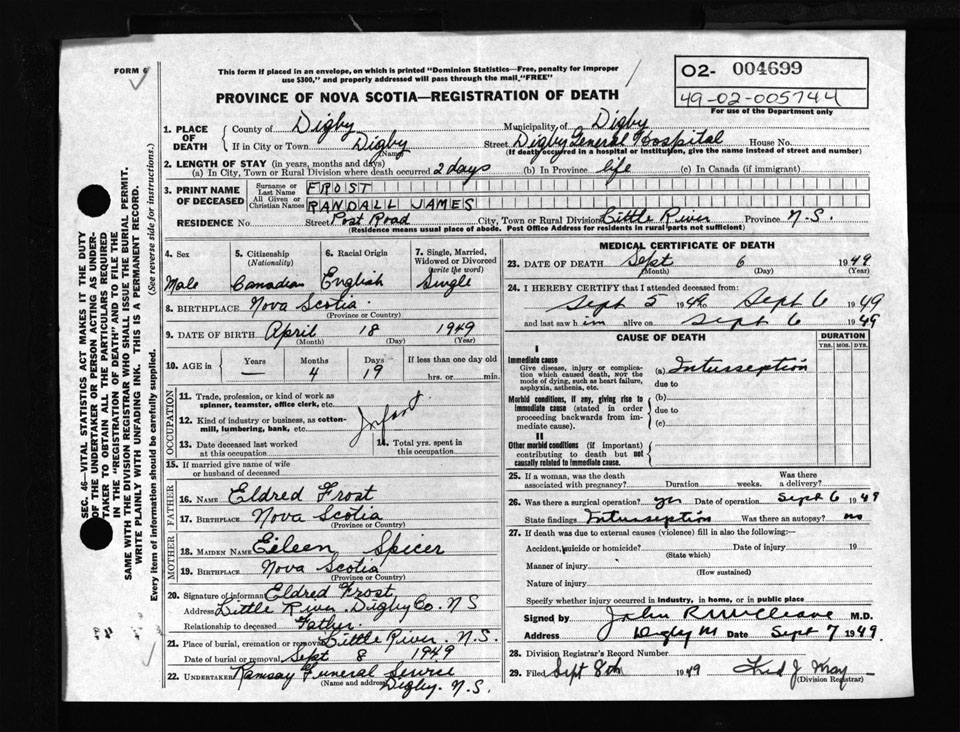 FORM 6
This form if placed in an envelope, on which is printed "Dominion Statistics—Free, penalty for improper
use $300," and properly addressed will pass through the mail "FREE"
PROVINCE OF NOVA SCOTIA—REGISTRATION OF DEATH
02- 004699
49-02-005744
For use of the Department only
SEC. 46—VITAL STATISTICS ACT MAKES IT THE DUTY
OF THE UNDERTAKER OR PERSON ACTING AS UNDER-
TAKER TO OBTAIN ALL THE PARTICULARS REQUIRED
IN THE "REGISTRATION OF DEATH" AND TO FILE THE
SAME WITH THE DIVISION REGISTRAR WHO SHALL ISSUE THE BURIAL PERMIT.
WRITE PLAINLY WITH UNFADING INK. THIS IS A PERMANENT RECORD.
Every item of information should be carefully supplied. (See reverse side for instructions.)
1. PLACE OF DEATH
County of Digby Municipality of Digby
If in City or Town Digby Street Digby General Hospital House No.
(Name) (If death occurred in a hospital or institution, give the name instead of street and number)
2. LENGTH OF STAY (in years, months and days)
(a) In City, Town or Rural Division where death occurred 2 days (b) In Province life (c) In Canada (if immigrant)
3. PRINT NAME OF DECEASED
Surname or Last Name FROST
All Given or Christian Names RANDALL JAMES
RESIDENCE No. Street Post Road City, Town or Rural Division Little River Province N.S.
(Residence means usual place of abode. Post Office Address for residents in rural parts not sufficient)
4. Sex 5. Citizenship (Nationality) 6. Racial Origin 7. Single, Married, Widowed or Divorced (write the word)
Male Canadian English Single
8. BIRTHPLACE Nova Scotia
(Province or Country)
9. DATE OF BIRTH April 18 1949
(Month) (Day) (Year)
10. AGE in Years Months Days If less than one day old
— 4 19 hrs. or min.
OCCUPATION
11. Trade, profession, or kind of work as
spinner, teamster, office clerk, etc.
12. Kind of industry or business, as cotton-
mill, lumbering, bank, etc.
Infant
13. Date deceased last worked
at this occupation
14. Total yrs. spent in
this occupation
15. If married give name of wife
or husband of deceased
FATHER
16. NAME Eldred Frost
17. BIRTHPLACE Nova Scotia
(Province or Country)
MOTHER
18. MAIDEN NAME Eileen Spicer
19. BIRTHPLACE Nova Scotia
(Province or Country)
20. Signature of informant Eldred Frost
Address Little River. Digby Co. N S
Relationship to deceased Father.
21. Place of burial, cremation or removal Little River. N.S.
Date of burial or removal Sept 8 1949
22. UNDERTAKER Ramsay Funeral Service
(Name and address) Digby. N.S.
MEDICAL CERTIFICATE OF DEATH
23. DATE OF DEATH Sept 6 1949
(Month) (Day) (Year)
24. I HEREBY CERTIFY that I attended deceased from:
Sept 5 1949 to Sept 6 1949
and last saw him alive on Sept 6 1949
CAUSE OF DEATH DURATION
YRS. MOS. DYS.
I
Immediate cause
Give disease, injury or complica-
tion which caused death, NOT the
mode of dying, such as heart failure,
asphyxia, asthenia, etc.
(a) Intusseption
due to
Morbid conditions, if any, giving rise to
immediate cause (stated in order
proceeding backwards from im-
mediate cause).
(b)
due to
(c)
II
Other morbid conditions (if important)
contributing to death but not
causally related to immediate cause.
25. If a woman, was the
death associated with pregnancy? Duration weeks. Was there
a delivery?
26. Was there a surgical operation? yes Date of operation Sept 6 1949
State findings Intusseption Was there an autopsy? no
27. If death was due to external causes (violence) fill in also the following:—
Accident, suicide or homicide? Date of injury 19
(State which)
Manner of injury
(How sustained)
Nature of injury
Specify whether injury occurred in industry, in home, or in public place
Signed by John R McCleave M.D.
Address Digby Date Sept 7 1949.
28. Division Registrar's Record Number
29. Filed Sept 8th 1949 Fred J. May
(Division Registrar)